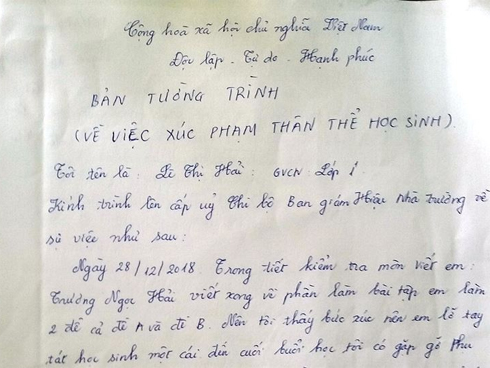 Cộng hoà xã hội chủ nghĩa Việt Nam
Độc lập - Tự do - Hạnh phúc
BẢN TƯỜNG TRÌNH
(VỀ VIỆC XÚC PHẠM THÂN THỂ HỌC SINH).
Tôi tên là : Lê Thị Hải : GVCN : Lớp 1
Kính trình lên cấp uỷ Chi bộ Ban giám Hiệu nhà trường về
sự việc như sau :
Ngày 28/12/2018. Trong tiết kiểm tra môn viết em :
Trương Ngọc Hải viết xong về phần làm bài tập em làm
2 đề cả đề A và đề B. Nên tôi thấy bức xúc nên em lỡ tay
tát học sinh một cái đến cuối buổi học tôi có gặp gỡ Phụ